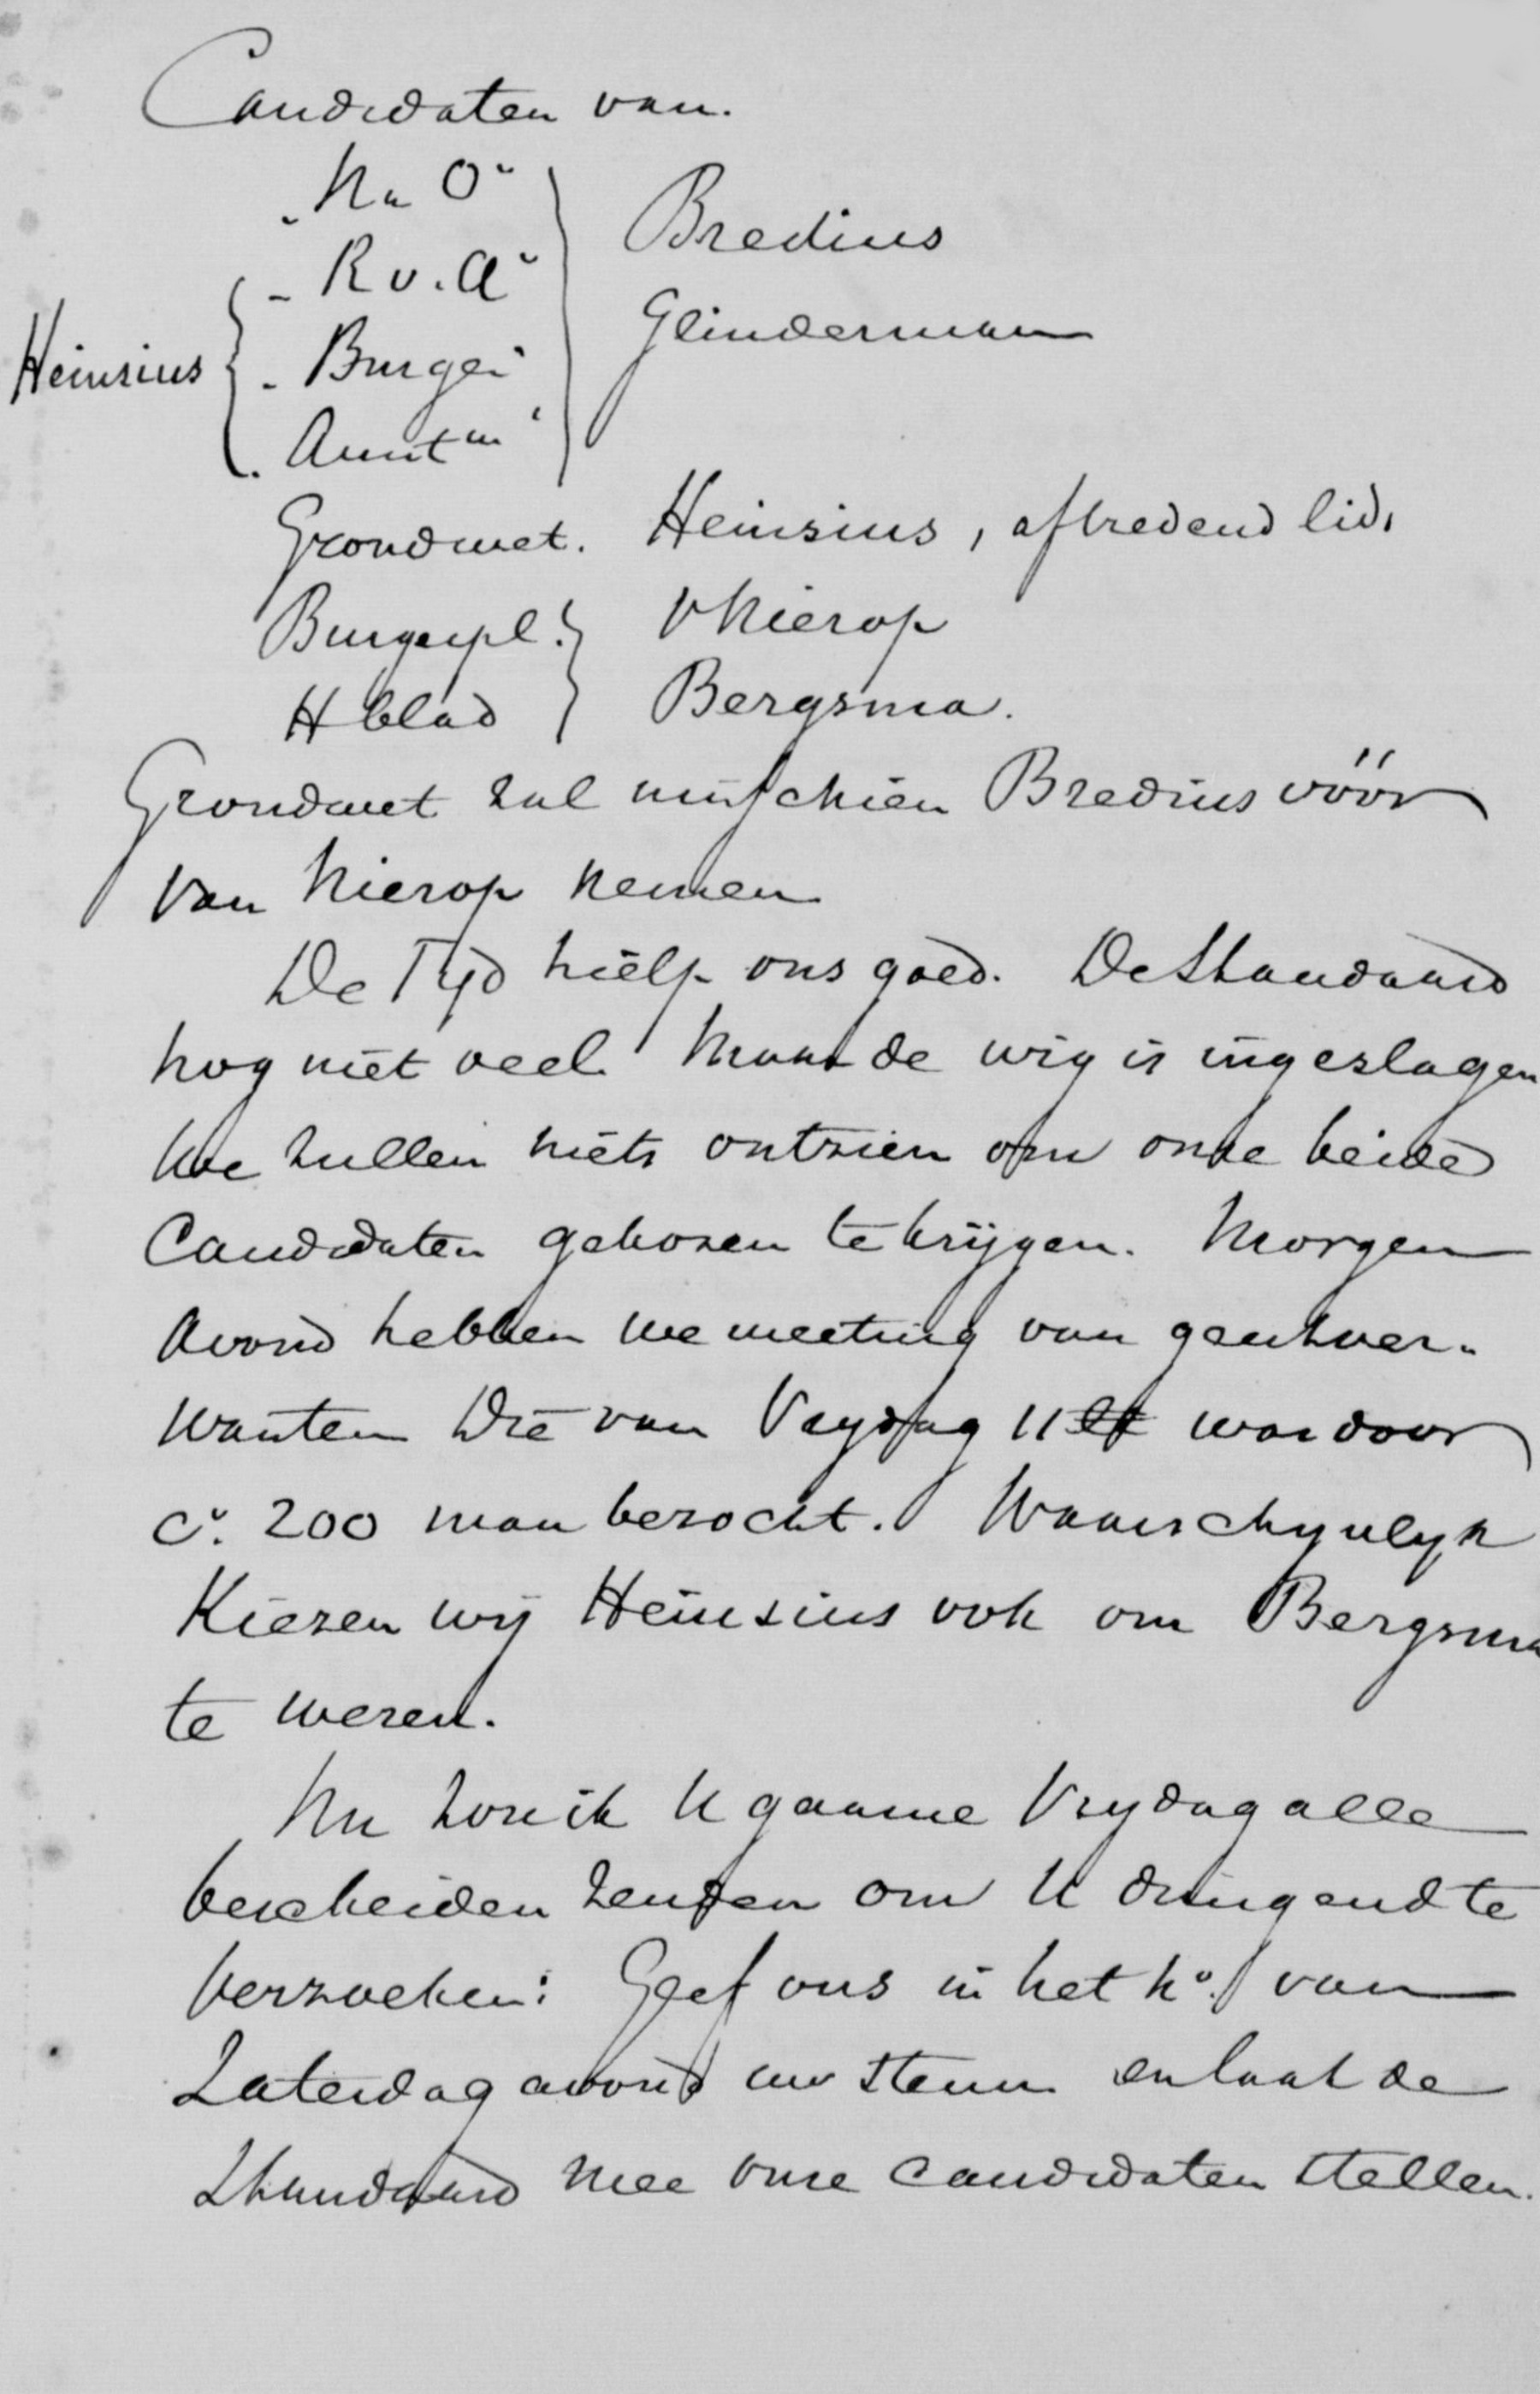 Candidaten van.
„N en O“
„R v. A“
Heinsius
„Burgerij“
„Amst m“
Bredius
Glinderman
Grondwet. Heinsius, aftredend lid.
Burgerpl.
V Nierop
H blad
Bergsma.
Grondwet zal misschien Bredius vóór
van Nierop nemen
De Tyd hielp ons goed. De Standaard
nog niet veel. Maar de wig is ingeslagen
We zullen niets ontzien om onze beide
Candidaten gekozen te krijgen. Morgen
Avond hebben we meeting van geestver-
wanten Die van Vrydag ll was door
c.a 200 man bezocht. Waarschynlyk
Kiezen wij Heinsius ook om Bergsma
te weren.
Nu zou ik U gaarne Vrydag alle
bescheiden zenden om U dringend te
verzoeken: Geef ons in het No. van
Zaterdag avond uw steun en laat de
Standaard mee onze candidaten stellen.